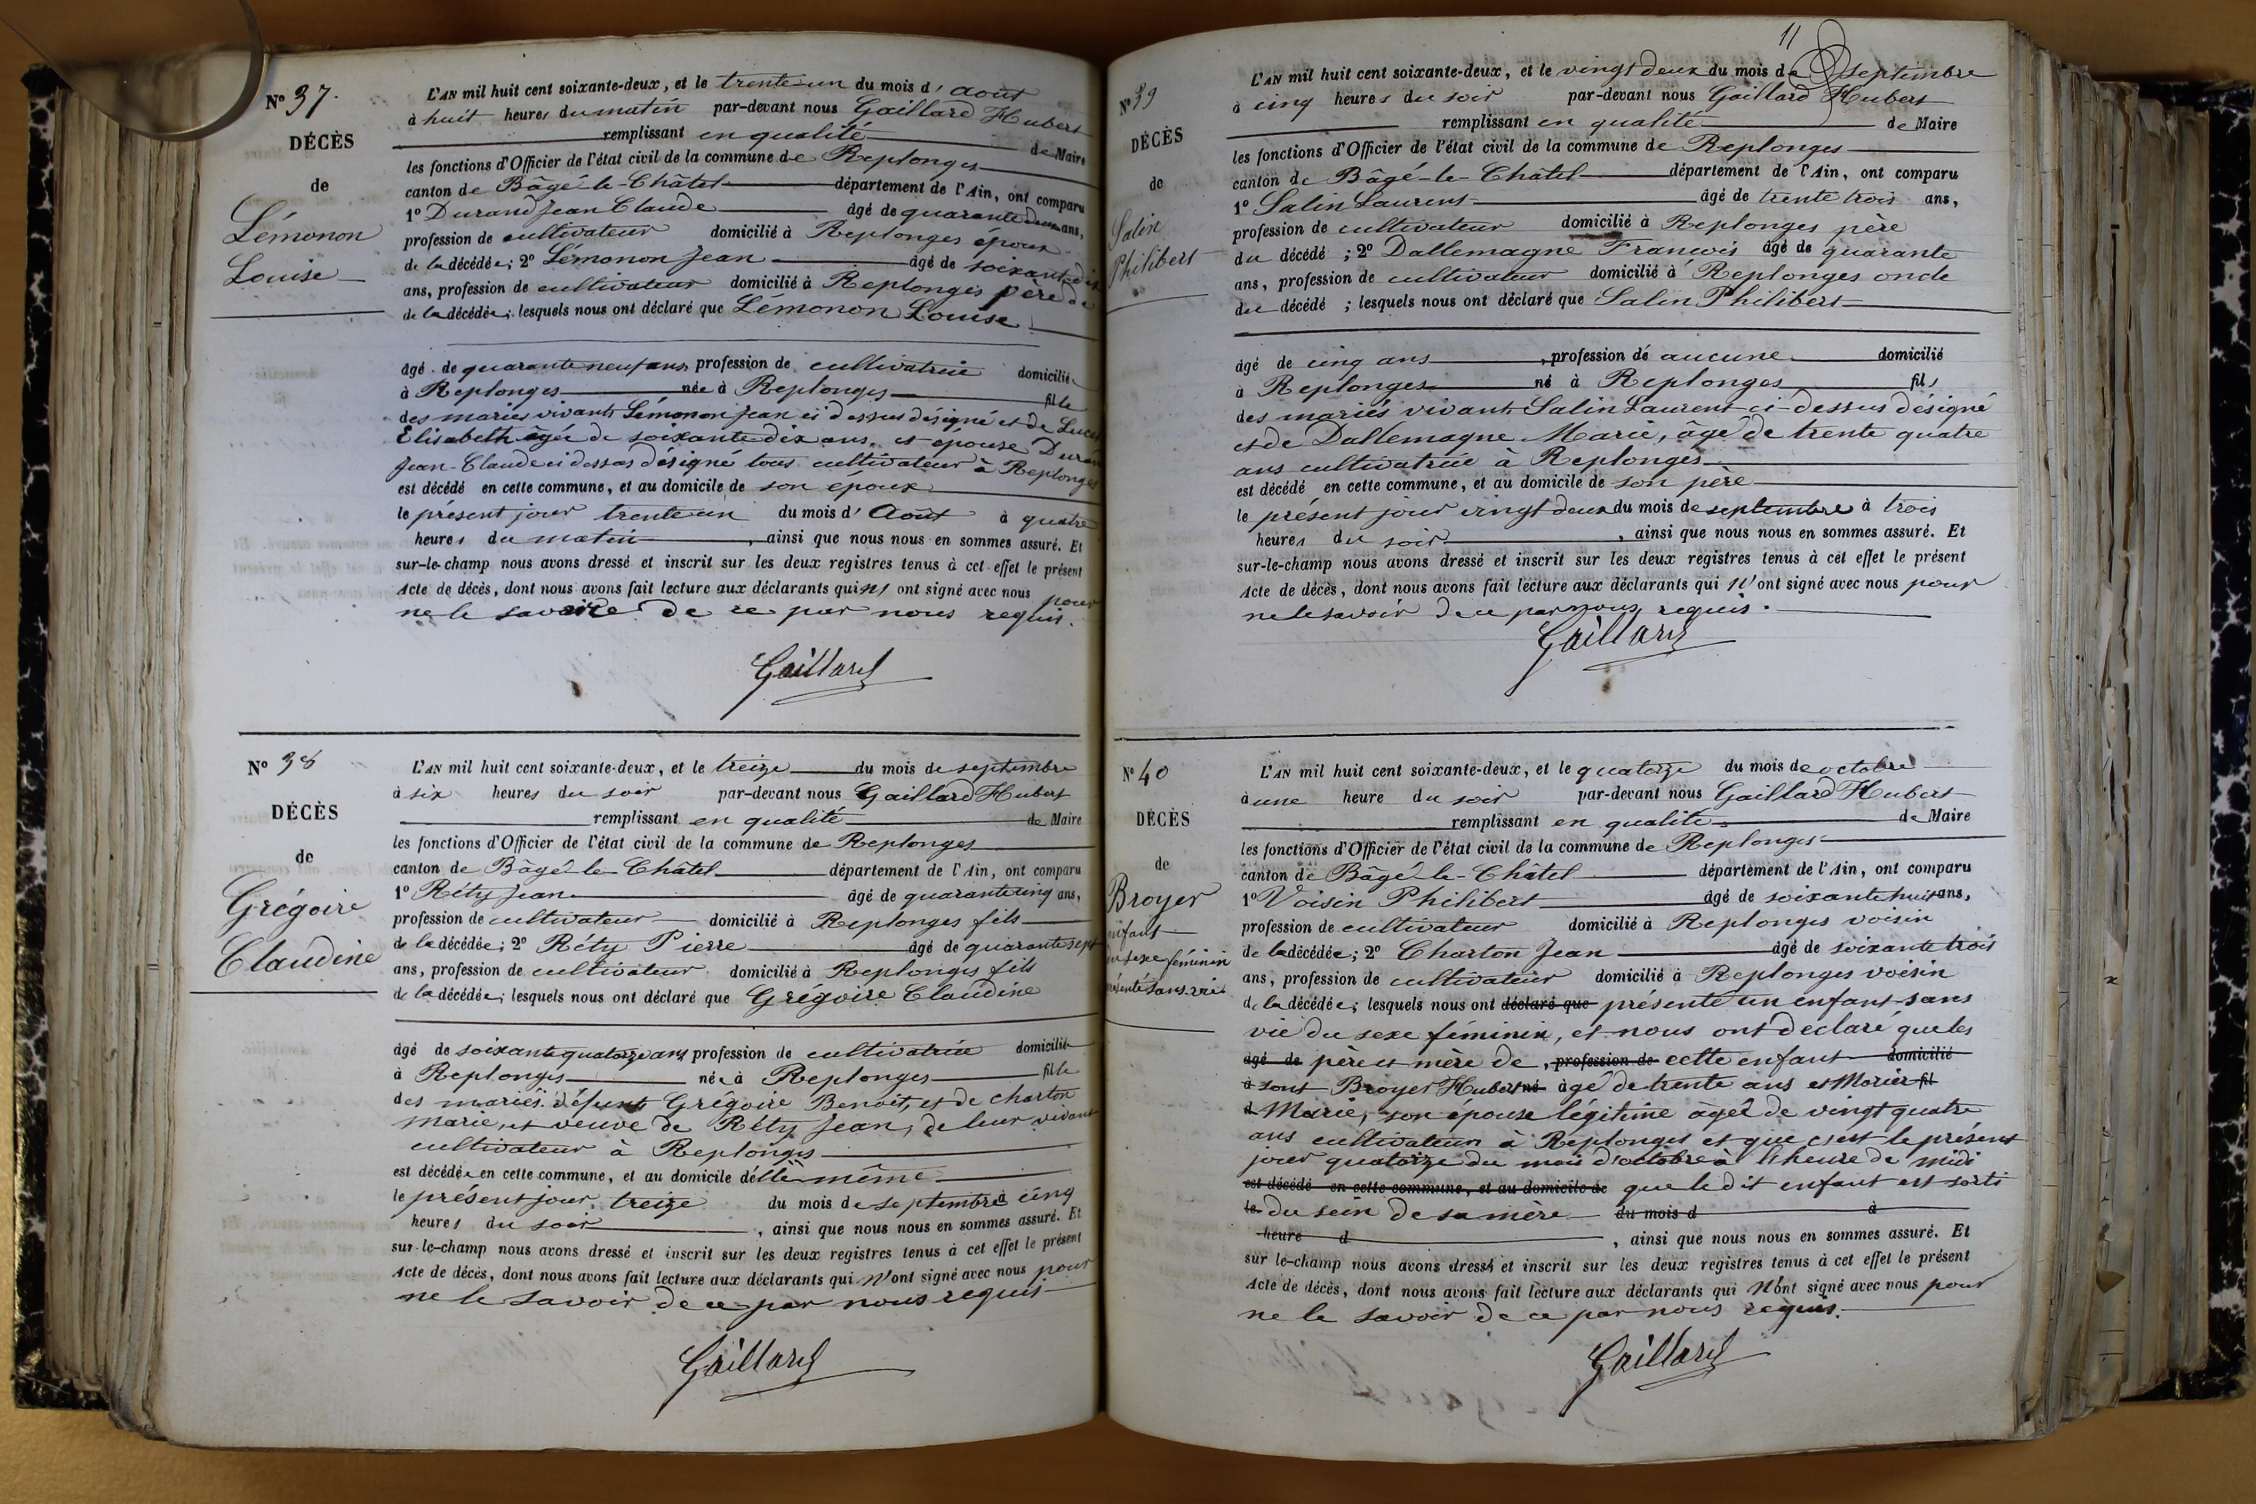 N° 37.
DÉCÈS
de
Lémonon
Louise
L'AN mil huit cent soixante-deux, et le trente-un du mois d' août
à huit heures du matin par-devant nous Gaillard Hubert
remplissant en qualité de Maire
les fonctions d'Officier de l'état civil de la commune de Replonges
canton de Bâgé-le-Châtel département de l'Ain, ont comparu
1° Durand Jean Claude âgé de quarante deux ans,
profession de cultivateur domicilié à Replonges époux
de la décédée; 2° Lémonon Jean âgé de soixante dix
ans, profession de cultivateur domicilié à Replonges père de
de la décédée; lesquels nous ont déclaré que Lémonon Louise
âgé de quarante neuf ans profession de cultivatrice domiciliée
à Replonges née à Replonges fille
des mariés vivants Lémonon Jean ci dessus désigné et de
Elisabeth âgée de soixante dix ans, et epouse Durand
Jean-Claude ci dessus désigné tous cultivateur à Replonges
est décédé en cette commune, et au domicile de son epoux
le présent jour trente un du mois d' Août à quatre
heures du matin, ainsi que nous nous en sommes assuré. Et
sur-le-champ nous avons dressé et inscrit sur les deux registres tenus à cet effet le présent
Acte de décès, dont nous avons fait lecture aux déclarants qui n' ont signé avec nous pour
ne le savoire de ce par nous requis.
Gaillard
N° 38
DÉCÈS
de
Grégoire
Claudine
L'AN mil huit cent soixante-deux, et le treize du mois de septembre
à six heures du soir par-devant nous Gaillard Hubert
remplissant en qualité de Maire
les fonctions d'Officier de l'état civil de la commune de Replonges
canton de Bâgé-le-Châtel département de l'Ain, ont comparu
1° Réty Jean âgé de quarante cinq ans,
profession de cultivateur domicilié à Replonges fils
de la décédée; 2° Réty Pierre âgé de quarante sept
ans, profession de cultivateur domicilié à Replonges fils
de la décédée; lesquels nous ont déclaré que Grégoire Claudine
âgé de soixante quatorze ans profession de cultivatrice domiciliée
à Replonges née à Replonges fille
des mariés défunts Grégoire Benoit, et de charton
Marie, et veuve de Réty Jean, de leur vivant
cultivateur à Replonges
est décédée en cette commune, et au domicile d'elle même
le présent jour treize du mois de septembre à cinq
heures du soir, ainsi que nous nous en sommes assuré. Et
sur-le-champ nous avons dressé et inscrit sur les deux registres tenus à cet effet le présent
Acte de décès, dont nous avons fait lecture aux déclarants qui n'ont signé avec nous pour
ne le savoir de ce par nous requis
Gaillard
11
N° 39
DÉCÈS
de
Salin
Philibert
L'AN mil huit cent soixante-deux, et le vingt deux du mois de septembre
à cinq heures du soir par-devant nous Gaillard Hubert
remplissant en qualité de Maire
les fonctions d'Officier de l'état civil de la commune de Replonges
canton de Bâgé-le-Châtel département de l'Ain, ont comparu
1° Salin Laurent âgé de trente trois ans,
profession de cultivateur domicilié à Replonges père
du décédé; 2° Dallemagne Francois âgé de quarante
ans, profession de cultivateur domicilié à Replonges oncle
du décédé; lesquels nous ont déclaré que Salin Philibert
âgé de cinq ans, profession de aucune domicilié
à Replonges né à Replonges fils
des mariés vivant Salin Laurent ci-dessus désigné
et de Dallemagne Marie, âgé de trente quatre
ans cultivatrice à Replonges
est décédé en cette commune, et au domicile de son père
le présent jour vingt deux du mois de septembre à trois
heures du soir, ainsi que nous nous en sommes assuré. Et
sur-le-champ nous avons dressé et inscrit sur les deux registres tenus à cet effet le présent
Acte de décès, dont nous avons fait lecture aux déclarants qui n'ont signé avec nous pour
ne le savoir de ce par nous requis.
Gaillard
N° 40
DÉCÈS
de
Broyer
enfant
du sexe féminin
présenté sans vie
L'AN mil huit cent soixante-deux, et le quatorze du mois de octobre
à une heure du soir par-devant nous Gaillard Hubert
remplissant en qualité de Maire
les fonctions d'Officier de l'état civil de la commune de Replonges
canton de Bâgé-le-Châtel département de l'Ain, ont comparu
1° Voisin Philibert âgé de soixante huit ans,
profession de cultivateur domicilié à Replonges voisin
de la décédée; 2° Charton Jean âgé de soixante trois
ans, profession de cultivateur domicilié à Replonges voisin
de la décédée; lesquels nous ont déclaré que présenté un enfant sans
vie du sexe féminin, et nous ont déclaré que les
âgé de père et mère de, profession de cette enfant domicilié
à sont Broyer Hubert né âgé de trente ans et Morier fil
d Marie, son épouse légitime âgée de vingt quatre
ans cultivateur à Replonges et que c'est le présent
jour quatorze du mois d'octobre à l'heure de midi
est décédé en cette commune, et au domicile de que le dit enfant est sorti
le du sein de sa mère du mois d à
heure d, ainsi que nous nous en sommes assuré. Et
sur le-champ nous avons dressé et inscrit sur les deux registres tenus à cet effet le présent
Acte de décès, dont nous avons fait lecture aux déclarants qui n'ont signé avec nous pour
ne le savoir de ce par nous requis.
Gaillard